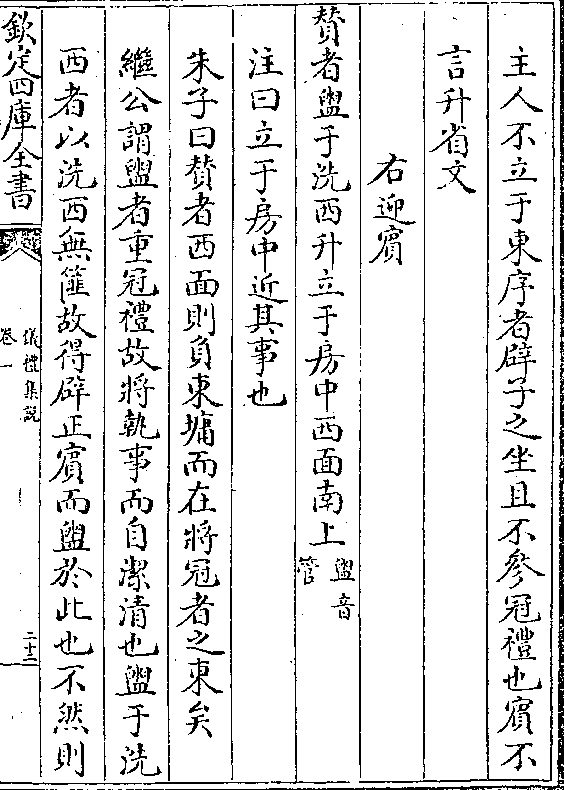 主人不立于東序者辟子之坐且不參冠禮也賓不
言升省文
右迎賓
贊者盥于洗西升立于房中西面南上盥音
管
注曰立于房中近其事也
朱子曰贊者西面則負東墉而在將冠者之東矣
繼公謂盥者重冠禮故將執事而自潔清也盥于洗
西者以洗西無篚故得辟正賓而盥於此也不然則
欽定四庫全書
儀禮集說
卷一
二十二